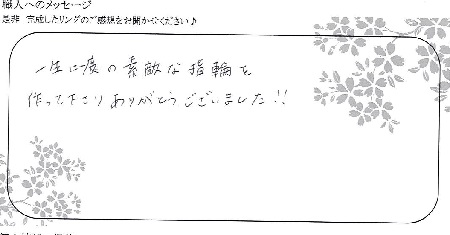 職人へのメッセージ
是非 完成したリングのご感想をお聞かせください♪
一生に一度の素敵な指輪を
作って下さりありがとうございました!!